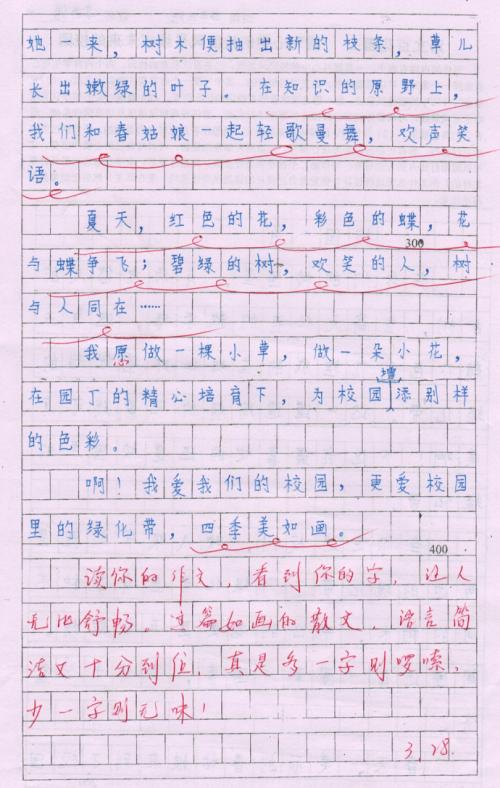 她一来，树木便抽出新的枝条，草儿
长出嫩绿的叶子。在知识的原野上，
我们和春姑娘一起轻歌曼舞，欢声笑
语。
夏天，红色的花，彩色的蝶，花
300
与蝶争飞；碧绿的树，欢笑的人，树
与人同在……
我愿做一棵小草，做一朵小花，
增
在园丁的精心培育下，为校园添别样
的色彩。
啊！我爱我们的校园，更爱校园
里的绿化带，四季美如画。
400
读你的作文，看到你的字，让人
无比舒畅。这篇如画的散文，语言简
洁又十分到位，真是多一字则啰嗦，
少一字则无味！
3.28.